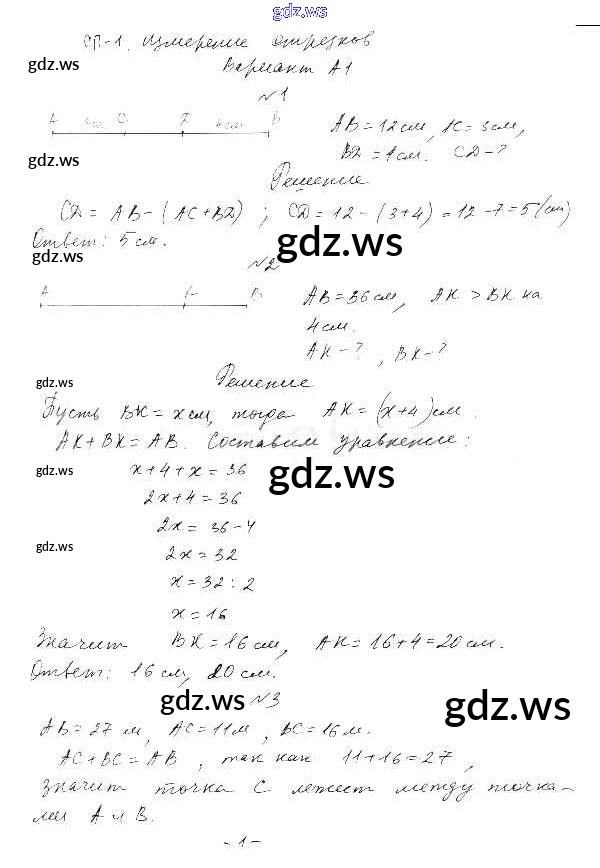 gdz.ws
СП-1. Измерение отрезков
gdz.ws
Вариант А1
№1
A 3см C D 4см B
AB=12см, AC=3см,
gdz.ws
BD=4см. CD-?
Решение
CD = AB-(AC+BD); CD=12-(3+4)=12-7=5(см)
Ответ: 5см.
gdz.ws
gdz.ws
№2
A K B
AB=36см, AK > BK на
4см.
AK-?, BK-?
Решение
gdz.ws
Пусть BK=x см, тогда AK=(x+4)см.
AK+BK=AB. Составим уравнение:
gdz.ws
x+4+x=36
gdz.ws
2x+4=36
2x=36-4
gdz.ws
2x=32
x=32:2
x=16
Значит BK=16см, AK=16+4=20см.
Ответ: 16см, 20см.
gdz.ws
№3
gdz.ws
AB=27м, AC=11м, BC=16м.
AC+BC=AB, так как 11+16=27,
значит точка C лежит между точка-
ми A и B.
-1-